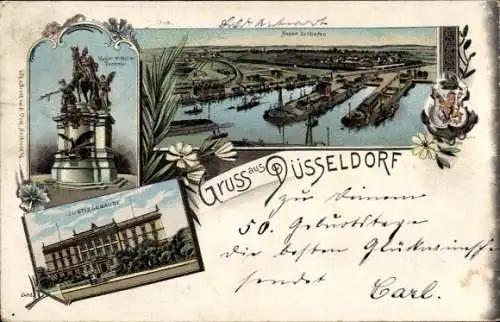 Neuer Zollhafen
Kaiser Wilhelm
Denkmal
Gruss aus Düsseldorf
JUSTIZGEBÄUDE
Zu Deinem
50. Geburtstage
die besten Glückwünsche
sendet Carl.